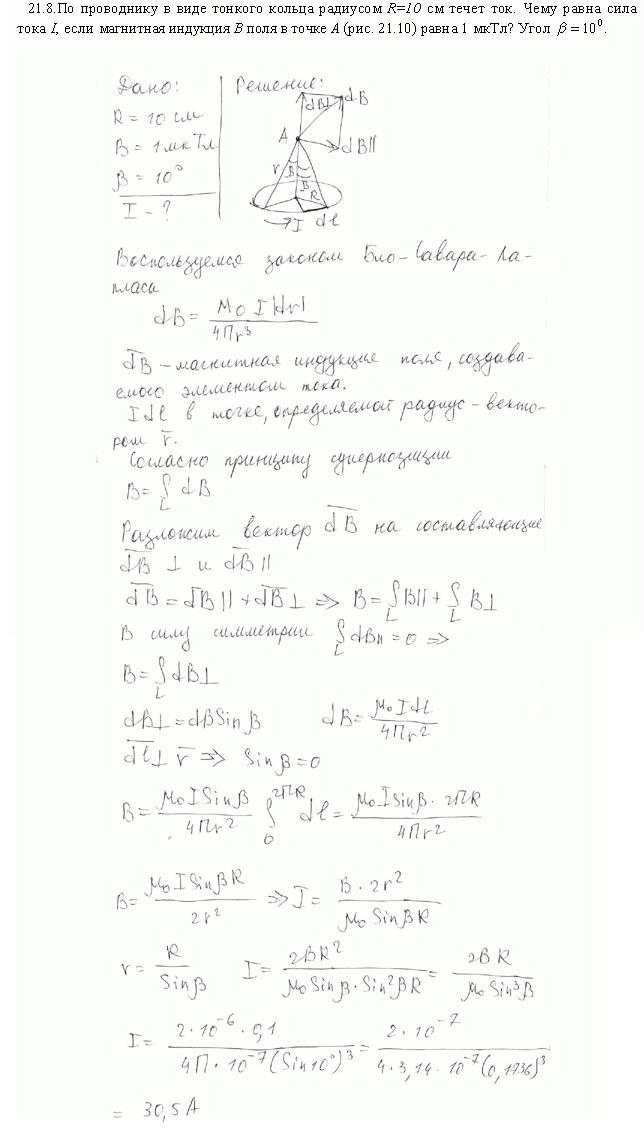 21.8.По проводнику в виде тонкого кольца радиусом R=10 см течет ток. Чему равна сила
тока I, если магнитная индукция B поля в точке A (рис. 21.10) равна 1 мкТл? Угол β = 10⁰.
Дано:
R = 10 см
B = 1 мкТл
β = 10°
I - ?
Решение:
dB⊥ dB
A
dB||
r β
β R
I dl
Воспользуемся законом Био-Савара-Ла-
пласа
dB = μ₀ I |dr| / 4πr³
dB – магнитная индукция поля, создава-
емого элементом тока.
I dl в точке, определяемой радиус-векто-
ром r̄.
Согласно принципу суперпозиции
B = ∫_L dB
Разложим вектор dB на составляющие
dB ⊥ и dB ||
dB = dB || + dB ⊥ ⇒ B = ∫_L B|| + ∫_L B⊥
В силу симметрии ∫_L dB|| = 0 ⇒
B = ∫_L dB⊥
dB⊥ = dB Sin β dB = μ₀ I dl / 4πr²
dl ⊥ r̄ ⇒ Sin β = 0
B = μ₀ I Sin β / 4πr² ∫₀^2πR dl = μ₀ I sin β · 2πR / 4πr²
B = μ₀ I Sin β R / 2r² ⇒ I = B · 2r² / μ₀ Sin β R
r = R / Sin β I = 2BR² / μ₀ Sin β · Sin² β R = 2BR / μ₀ Sin³ β
I = 2 · 10⁻⁶ · 0,1 / 4π · 10⁻⁷ (Sin 10°)³ = 2 · 10⁻⁷ / 4 · 3,14 · 10⁻⁷ (0,1736)³
= 30,5 A